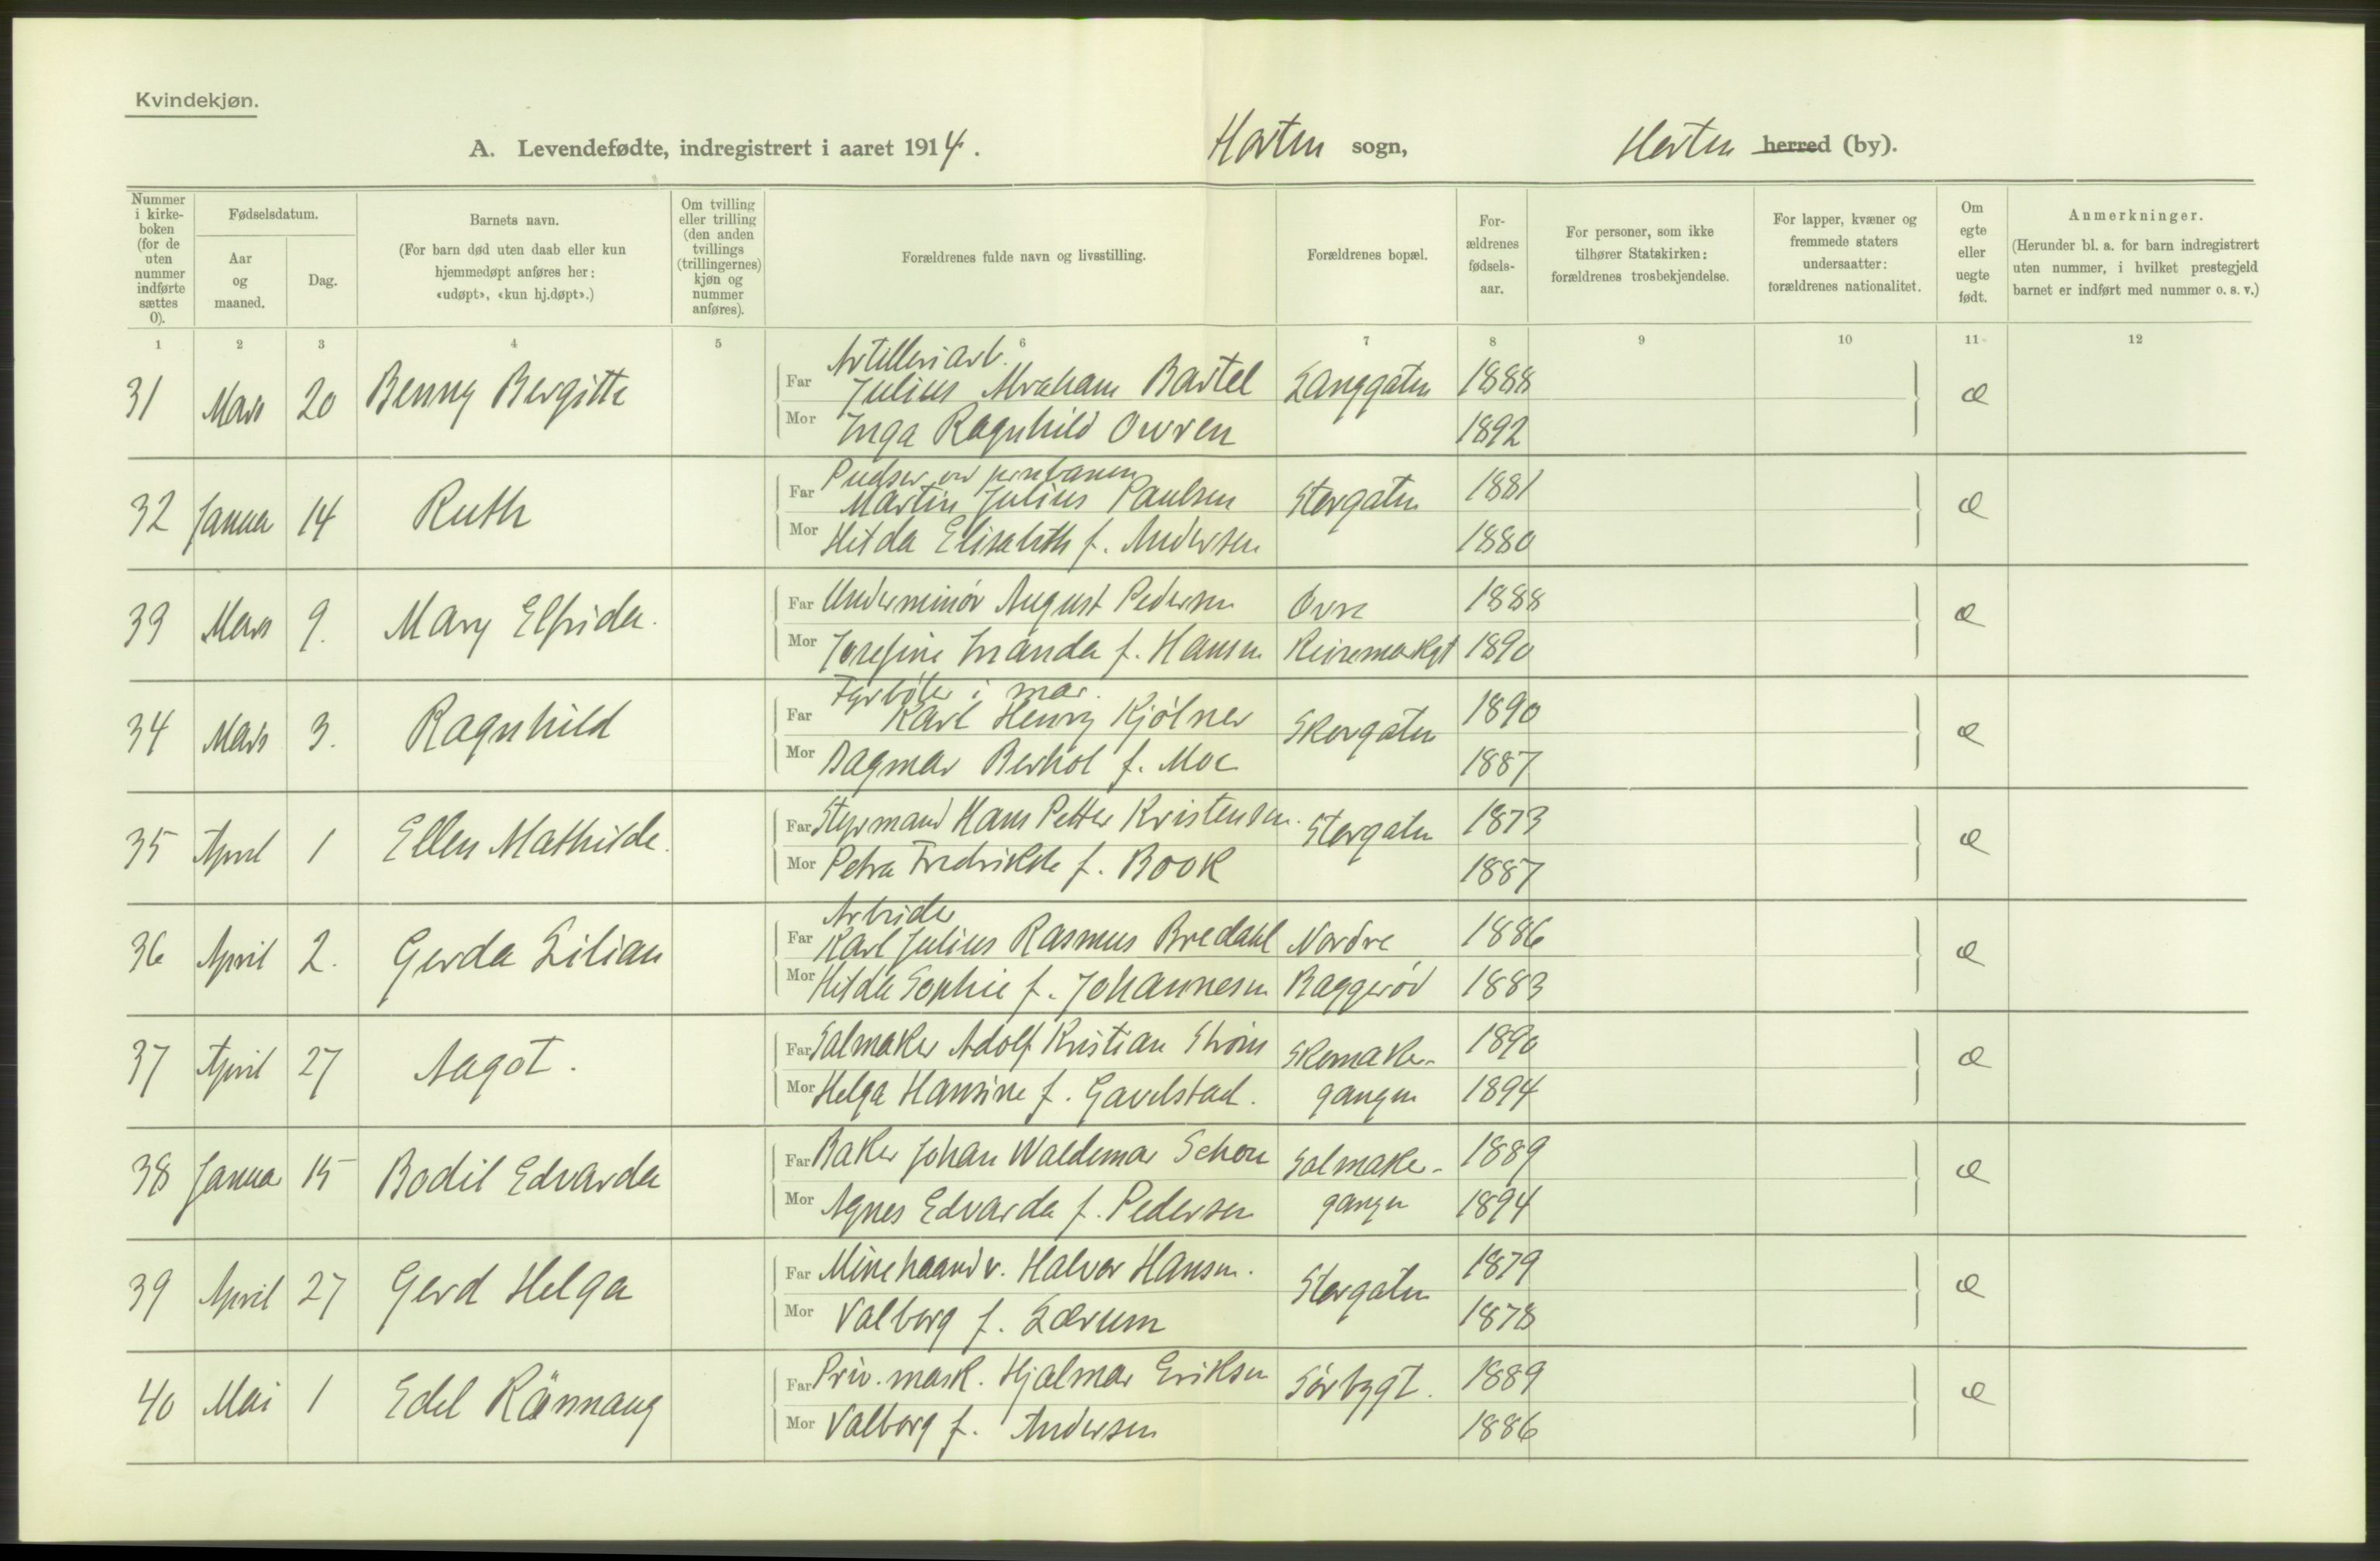 Kvindekjøn.
A. Levendefødte, indregistrert i aaret 1914. Horten sogn, Horten herred (by).
Nummer i kirke-boken (for de uten nummer indførte sættes 0).
Fødselsdatum.
Aar og maaned.
Dag.
Barnets navn.
(For barn død uten daab eller kun hjemmedøpt anføres her: «udøpt», «kun hj.døpt».)
Om tvilling eller trilling (den anden tvillings (trillingernes) kjøn og nummer anføres).
Forældrenes fulde navn og livsstilling.
Forældrenes bopæl.
For-ældrenes fødsels-aar.
For personer, som ikke tilhører Statskirken: forældrenes trosbekjendelse.
For lapper, kvæner og fremmede staters undersaatter: forældrenes nationalitet.
Om egte eller uegte født.
Anmerkninger.
(Herunder bl. a. for barn indregistrert uten nummer, i hvilket prestegjeld barnet er indført med nummer o. s. v.)
1 2 3 4 5 6 7 8 9 10 11 12
Artilleriarb.
31 Mars 20 Benny Bergitte Far Julius Abraham Bartel Langgaten 1888 e
Mor Inga Ragnhild Owren 1892
Pudser ved jernbanen
32 Januar 14 Ruth Far Martin Julius Paulsen Storgaten 1881 e
Mor Hilda Elisabeth f. Andersen 1880
33 Mars 9. Mary Elfrida. Far Underminør August Pedersen Øvre 1888 e
Mor Josefine Amanda f. Hansen Keisemarkgt 1890
Fyrbøter i mar.
34 Mars 3. Ragnhild Far Karl Henry Kjølner Skovgaten 1890 e
Mor Dagmar f. Moe 1887
35 April 1 Ellen Mathilde. Far Styrmand Hans Petter Kristensen. Storgaten 1873 e
Mor Petra Fredrikke f. Book 1887
Arbeider
36 April 2. Gerda Lilian Far Karl Julius Rasmus Bredahl Nordre 1886 e
Mor Hilda Sophie f. Johannesen Baggerød 1883
37 April 27 Aagot. Far Salmaker Adolf Kristian Strøm Skomaker- 1890 e
Mor Helga Hansine f. Gavelstad. gangen 1894
38 Januar 15 Bodil Edvarda Far Baker Johan Waldemar Schou Salmaker- 1889 e
Mor Agnes Edvarda f. Pedersen gangen 1894
39 April 27 Gerd Helga Far Minehaandv. Halvor Hansen. Storgaten 1879 e
Mor Valborg f. Lærum 1878
40 Mai 1 Edel Rännaug Far Priv. mask. Hjalmar Eriksen Sørbygt. 1889 e
Mor Valborg f. Andersen 1886